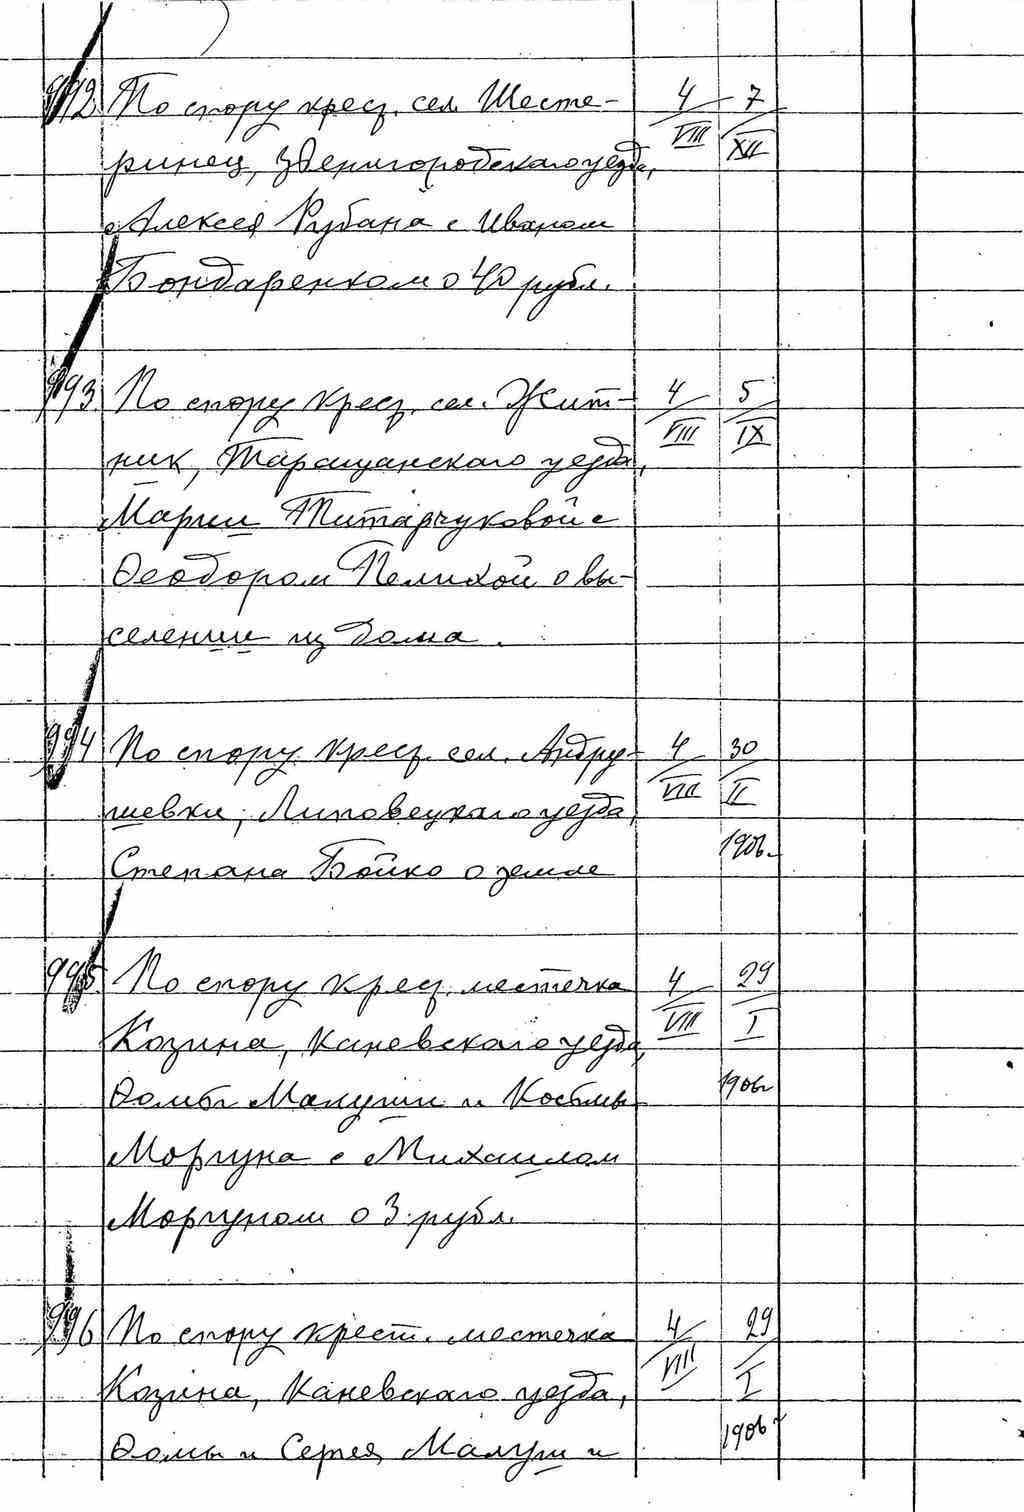 992 По спору крест. сел. Шесте- 4/VIII 7/XII
ринец, Звенигородскаго уезда,
Алексея Рубана с Иваном
Бондаренком о 40 рубл.
993 По спору крест. сел. Жит- 4/VIII 5/IX
ник, Таращанскаго уезда,
Марии Титарчуковой с
Феодором Пелихой о вы-
селении из дома.
994 По спору крест. сел. Андру- 4/VIII 30/II
шевки, Липовецкаго уезда, 1906 г.
Степана Бойко о земле
995 По спору крест. местечка 4/VIII 29/I
Козина, Каневскаго уезда,
Фомы Малуши и Косьмы 1906 г
Моргуна с Михаилом
Моргуном о 3 рубл.
996 По спору крест. местечка 4/VIII 29/I
Козина, Каневскаго уезда,
Фомы и Сергея Малуш и 1906 г